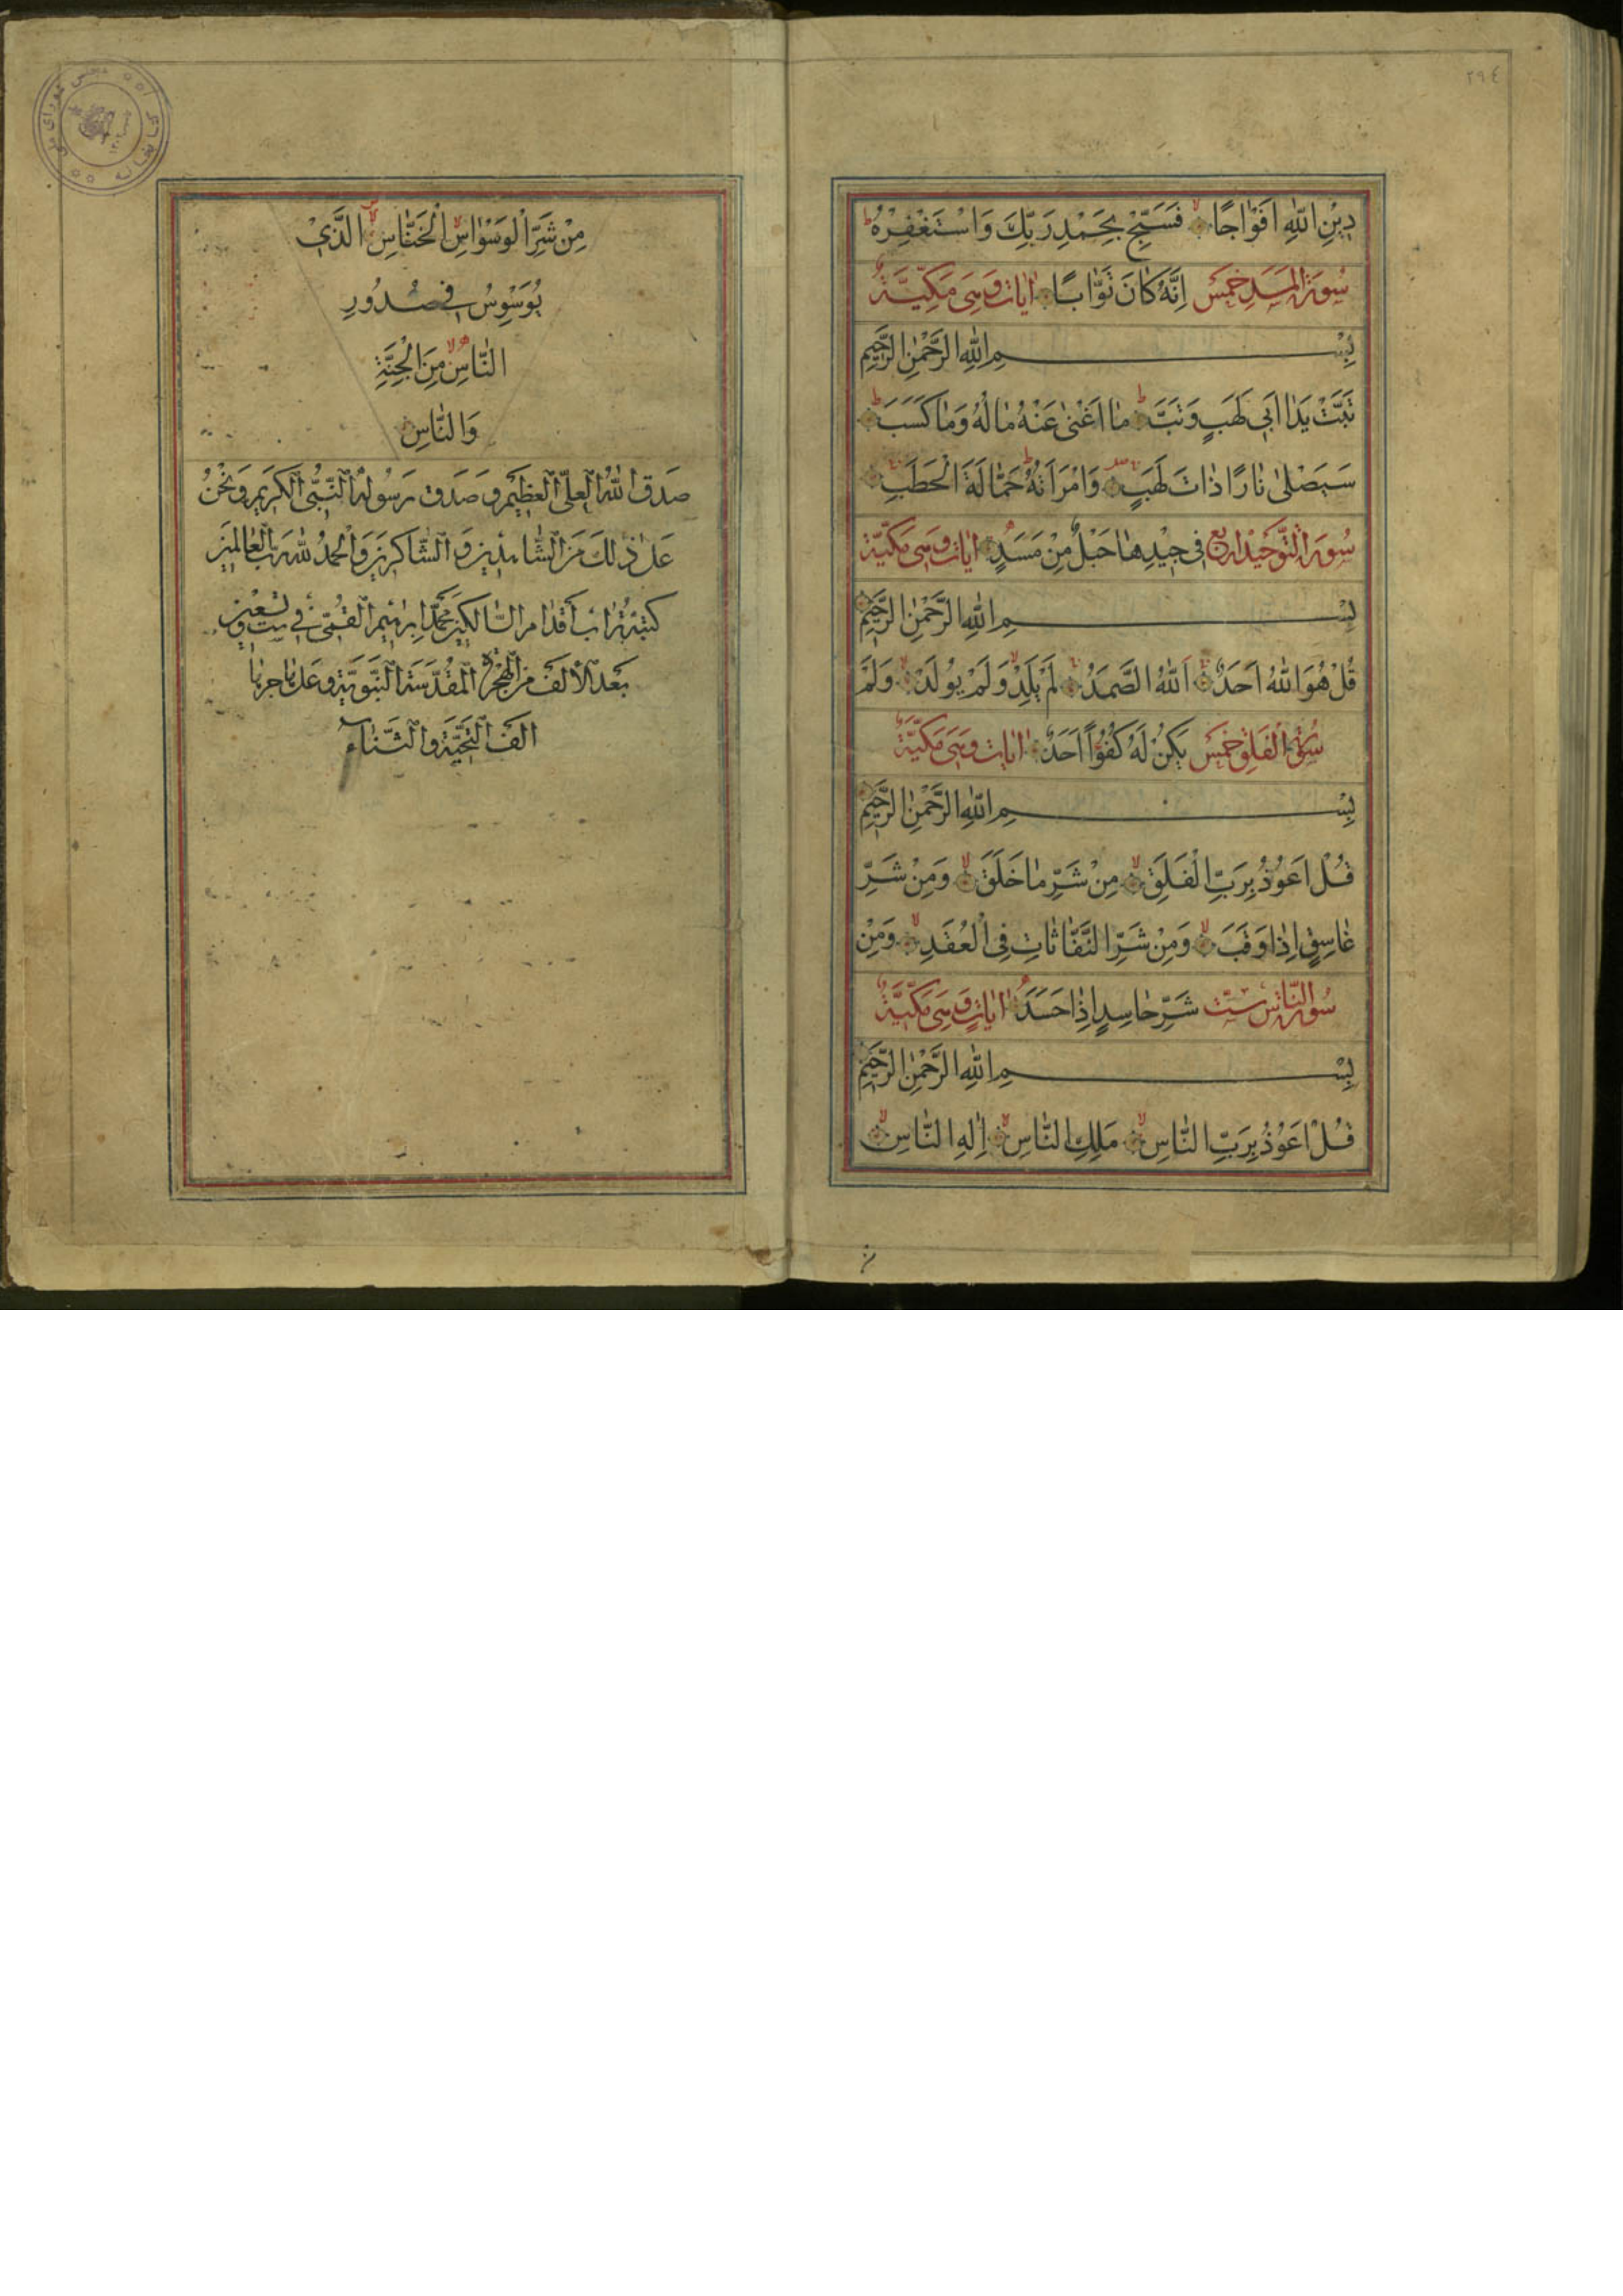 ٢٩٤
دِيْنِ اللّٰهِ اَفْوٰاجًا فَسَبِّحْ بِحَمْدِ رَبِّكَ وَاسْتَغْفِرْهُ ط
سُورَةُ الْمَسَدِ خَمْسُ اِنَّهُ كٰانَ تَوّٰابًا اٰيٰاتٍ وَهِىَ مَكِّيَّةٌ
بِسْمِ اللّٰهِ الرَّحْمٰنِ الرَّحٖيمِ
تَبَّتْ يَدٰا اَبٖي لَهَبٍ وَتَبَّ ط مٰا اَغْنٰى عَنْهُ مٰالُهُ وَمٰا كَسَبَ ط
سَيَصْلٰى نٰارًا ذٰاتَ لَهَبٍ وَامْرَاَتُهُ ط حَمّٰالَةَ الْحَطَبِ
سُورَةُ التَّوْحٖيدِ اَرْبَعُ فٖي جٖيْدِهٰا حَبْلٌ مِنْ مَسَدٍ اٰيٰاتٍ وَهِىَ مَكِّيَّةٌ
بِسْمِ اللّٰهِ الرَّحْمٰنِ الرَّحٖيمِ
قُلْ هُوَ اللّٰهُ اَحَدٌ اَللّٰهُ الصَّمَدُ لَمْ يَلِدْ لا وَلَمْ يُولَدْ لا وَلَمْ
سُورَةُ الْفَلَقِ خَمْسُ يَكُنْ لَهُ كُفُؤًا اَحَدٌ اٰيٰاتٍ وَهِىَ مَكِّيَّةٌ
بِسْمِ اللّٰهِ الرَّحْمٰنِ الرَّحٖيمِ
قُلْ اَعُوْذُ بِرَبِّ الْفَلَقِ لا مِنْ شَرِّ مٰا خَلَقَ لا وَمِنْ شَرِّ
غٰاسِقٍ اِذٰا وَقَبَ لا وَمِنْ شَرِّ النَّفّٰاثٰاتِ فِى الْعُقَدِ لا وَمِنْ
سُورَةُ النّٰاسِ سِتُّ شَرِّ حٰاسِدٍ اِذٰا حَسَدَ اٰيٰاتٍ وَهِىَ مَكِّيَّةٌ
بِسْمِ اللّٰهِ الرَّحْمٰنِ الرَّحٖيمِ
قُلْ اَعُوْذُ بِرَبِّ النّٰاسِ لا مَلِكِ النّٰاسِ لا اِلٰهِ النّٰاسِ لا
مِنْ شَرِّ الْوَسْوٰاسِ لا الْخَنّٰاسِ لا الَّذٖيْ
يُوَسْوِسُ فٖي صُدُورِ
النّٰاسِ لا مِنَ الْجِنَّةِ
وَالنّٰاسِ
صَدَقَ اللّٰهُ الْعَلِىُّ الْعَظٖيْمُ وَصَدَقَ رَسُولُهُ النَّبِىُّ الْكَرٖيمُ وَنَحْنُ
عَلٰى ذٰلِكَ مِنَ الشّٰاهِدٖينَ وَالشّٰاكِرٖينَ وَالْحَمْدُ لِلّٰهِ رَبِّ الْعٰالَمٖينَ
كتبه تُراب أقدام السّالكين محمّد ابرٰهيم القُمّى فى ست وتسعين
بعد الألف من الهجرة المقدّسة النّبويّة وعلى هاجرها
الف التّحيّة والثّناء